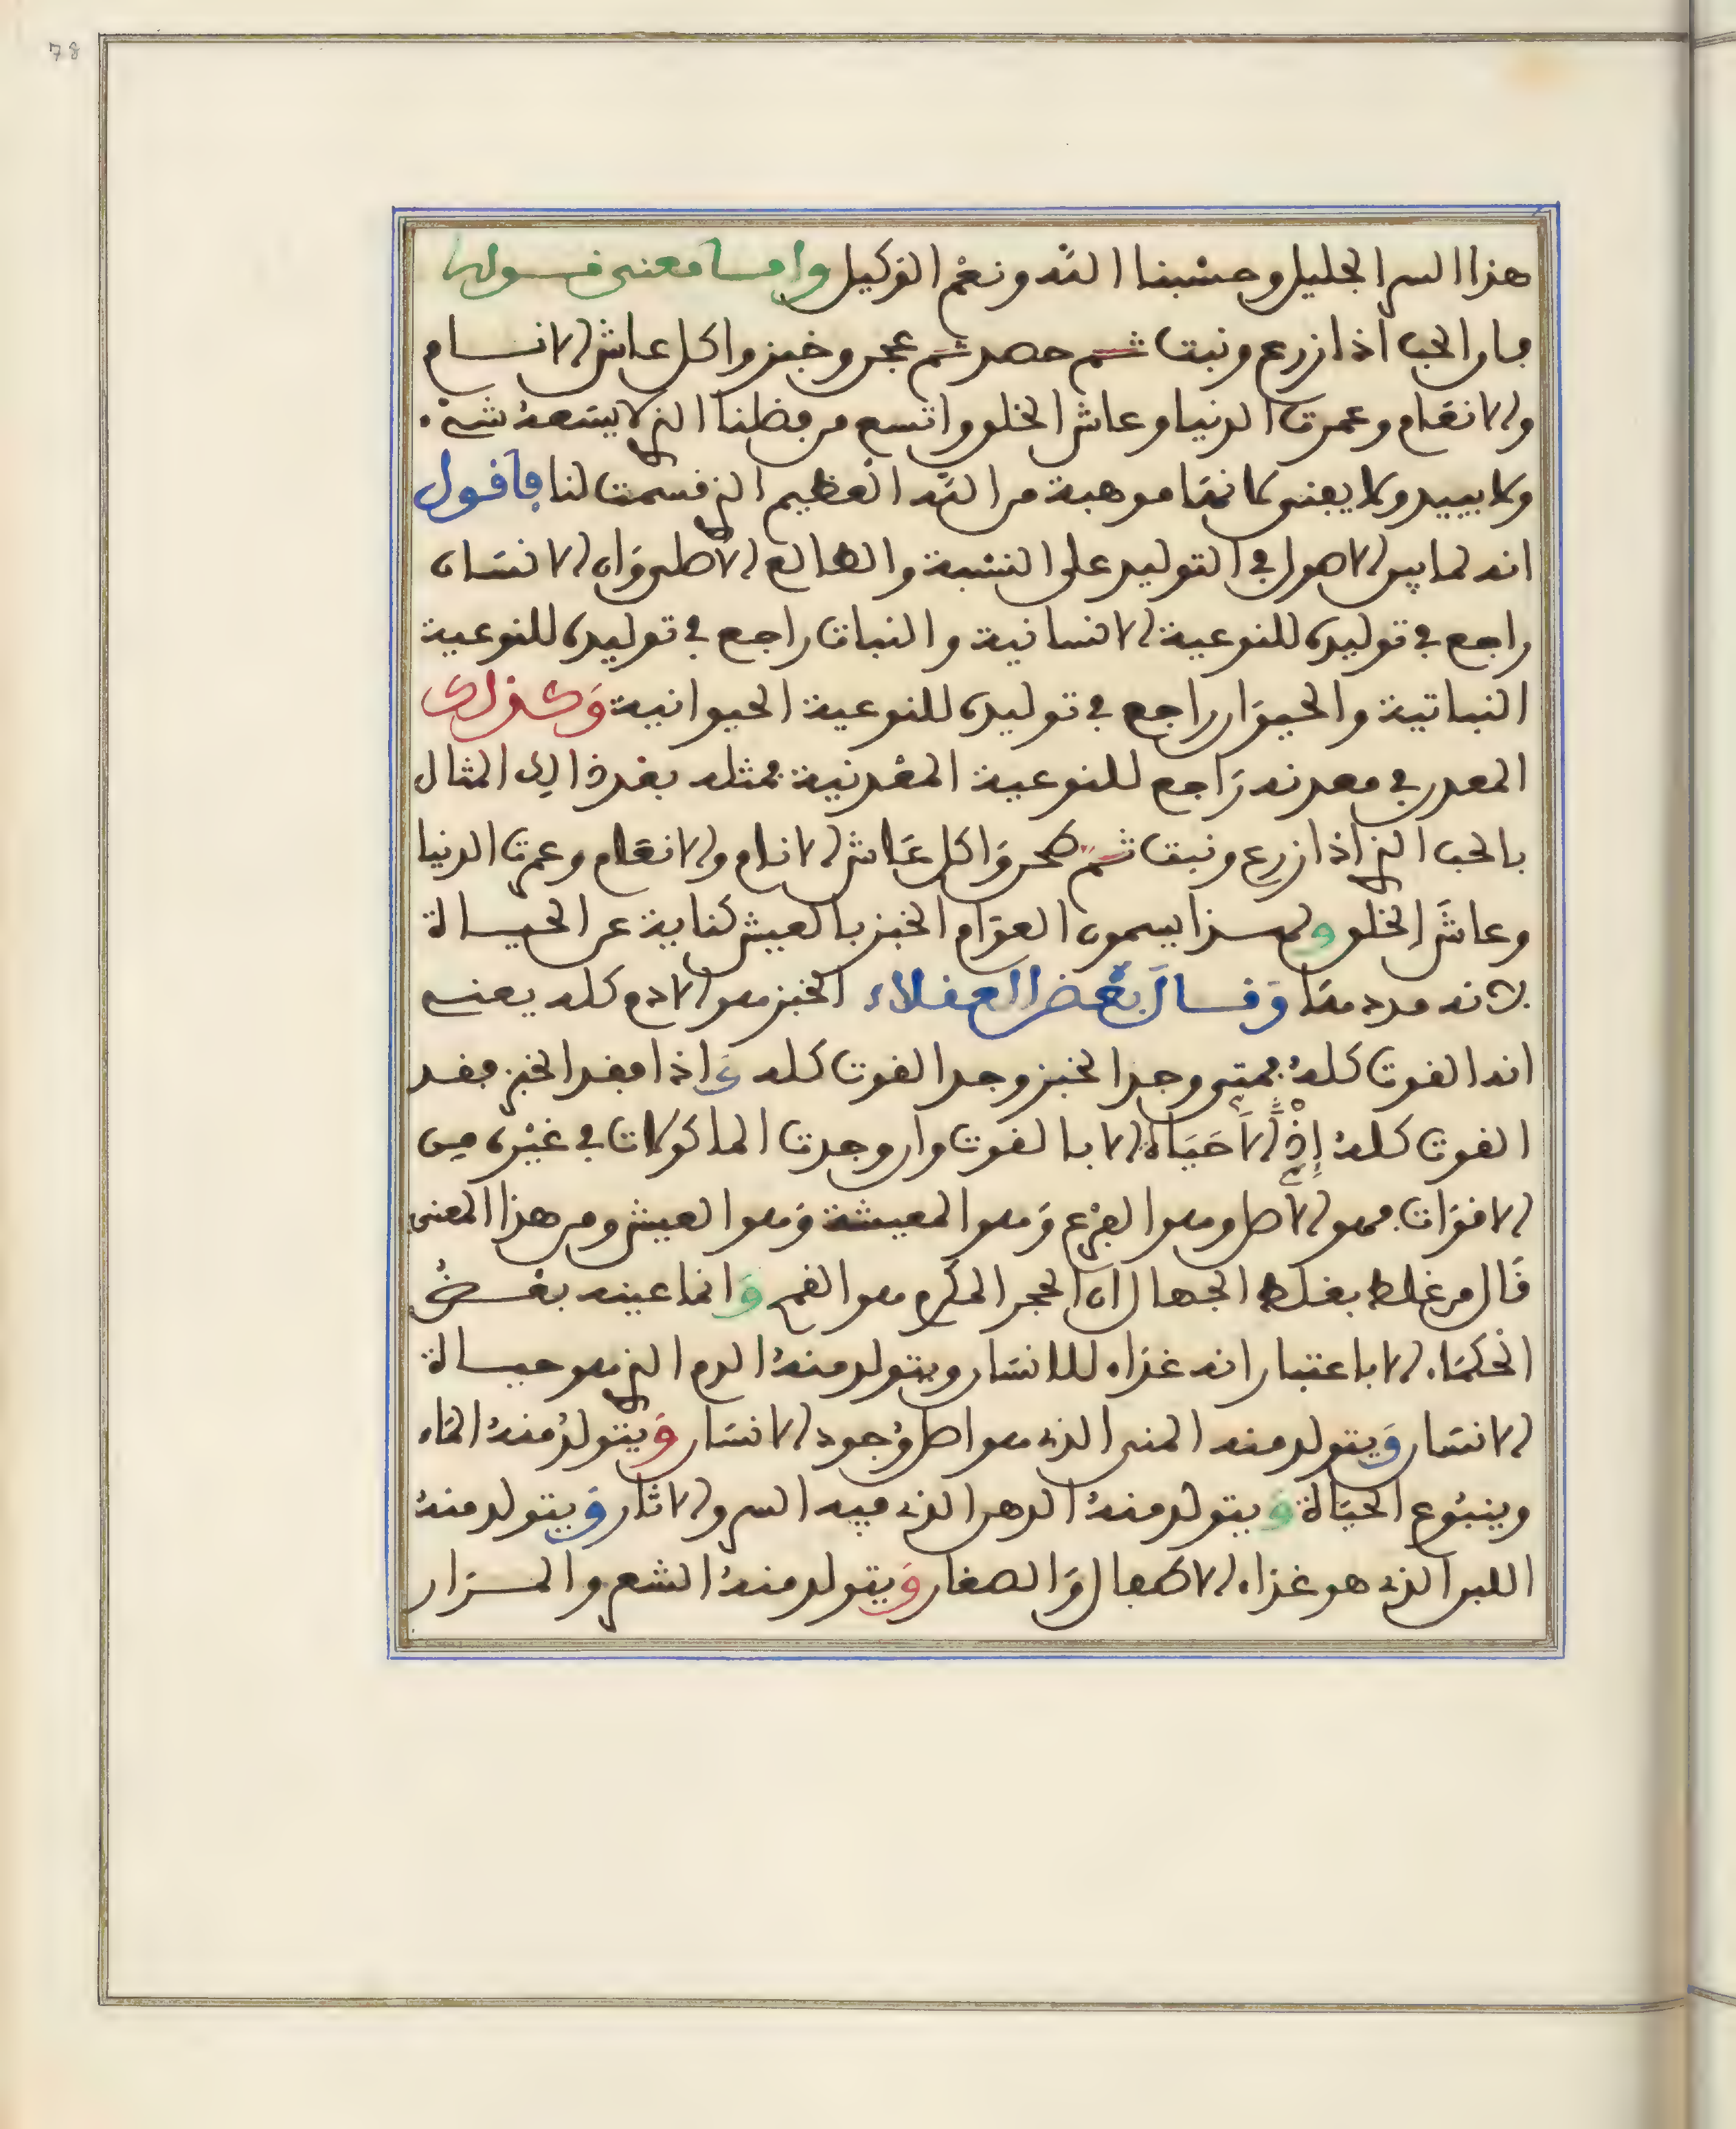 78
هذا السر الجليل وحسبنا الله ونعم الوكيل وامـا معنى قـولها
فان الحب اذا زرع ونبت ثم حصد ثم عجن وخبز واكل عاش الانـام
والانعام وعمرت الدنيا وعاش الخلق واتسع من فضلنا الذي لا يسعه شيء
ولا يبيد ولا يفنى لانها موهبة من الله العظيم الذي قسمت لنا فاقول
انه لما بين الاصول في التوليد على النسبة والطالع الاصلي وان الانسان
راجع في توليده للنوعية الانسانية والنبات راجع في توليده للنوعية
النباتية والحيوان راجع في توليده للنوعية الحيوانية وكذلك
المعدن في معدنه راجع للنوعية المعدنية فمثله بعد ذالك المثال
بالحب الذي اذا زرع ونبت ثم طحن واكل عاش الانام والانعام وعمرت الدنيا
وعاش الخلق ولهـذا يسمون العوام الخبز بالعيش كناية عن الحيـاة
لانه مددها وقـال بعض العقلاء الخبز هو الادم كله يعني
انه القوت كله فمتى وجد الخبز وجد القوت كله واذا فقد الخبز فقد
القوت كله إذ لا حَيَاة الا بالقوت وان وجدت الماكولات في غيره من
الاقوات فهو الاصل وهو الفرع وهو المعيشة وهو العيش ومن هذا المعنى
قال من غلط بغلط الجهال ان الحجر المكرم هو القمح وانما عينه بعـض
الحكماء الا باعتبار انه غذاء للانسان ويتولد منه الدم الذي هو حيـاة
الانسان ويتولد منه المني الذي هو اصل وجود الانسان ويتولد منه الماء
وينبوع الحياة ويتولد منه الدهن الذي فيه السر والاثار ويتولد منه
اللبن الذي هو غذاء الاطفال والصغار ويتولد منه الشعر والمـرار